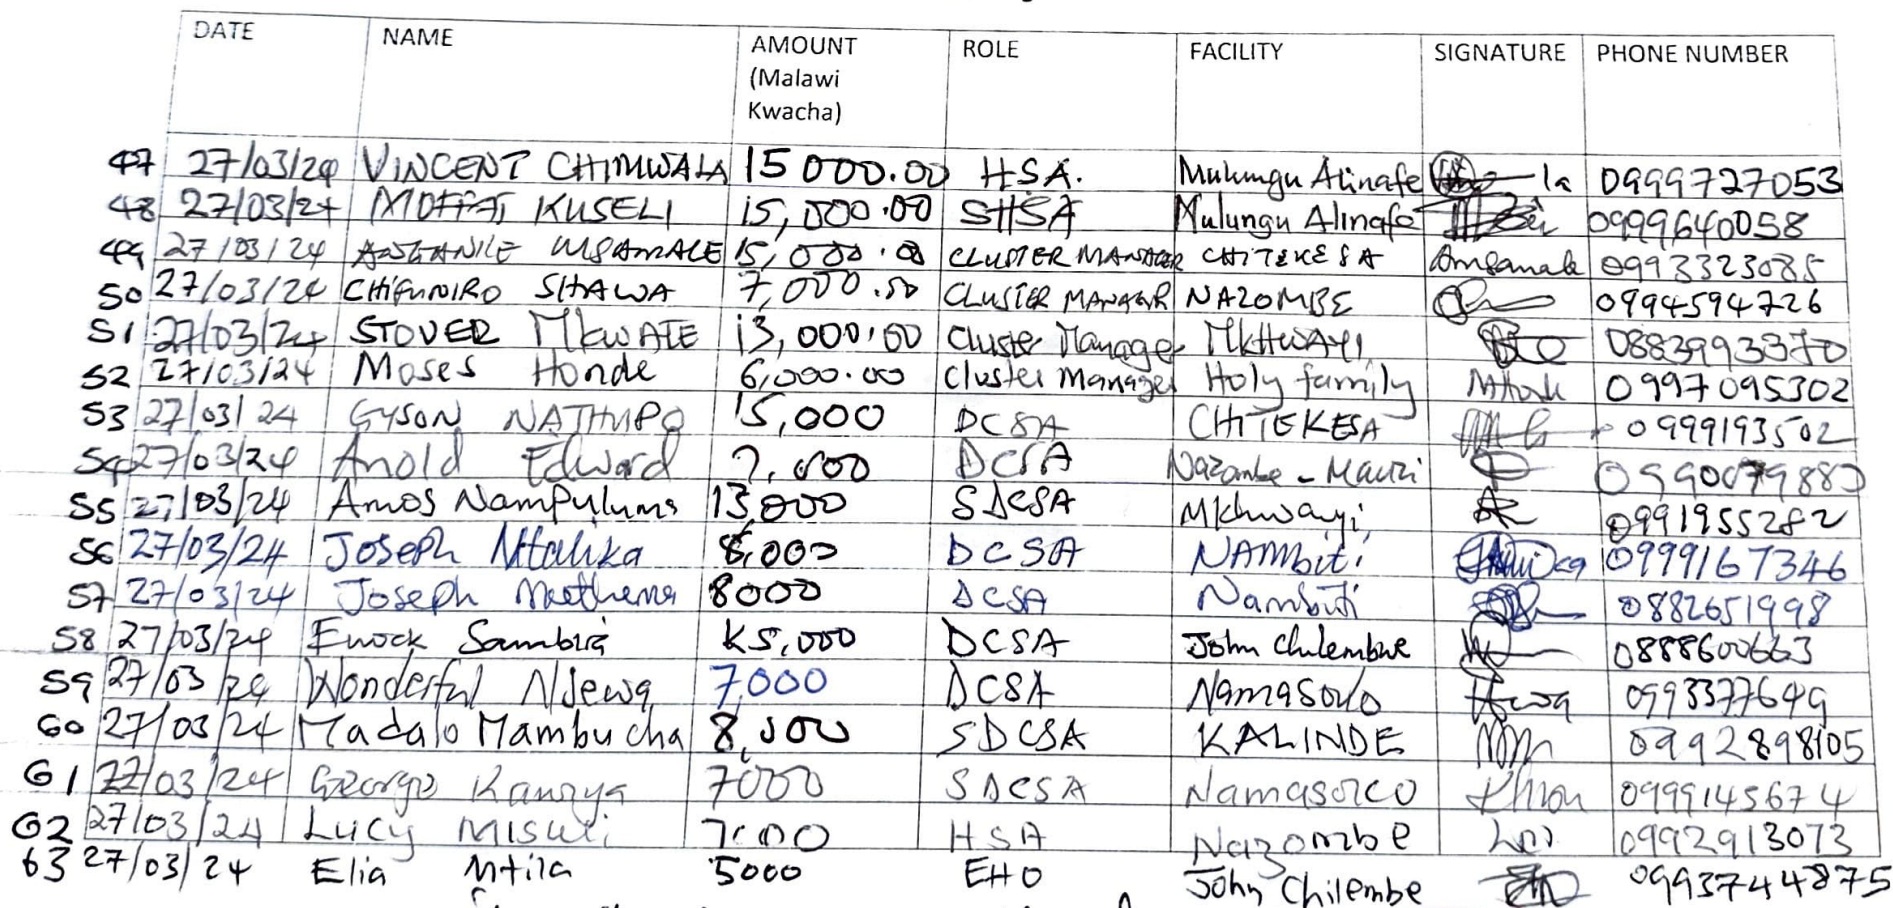 DATE NAME AMOUNT (Malawi Kwacha) ROLE FACILITY SIGNATURE PHONE NUMBER
47 27/03/24 VINCENT CHIMWALA 15000.00 HSA. Mulungu Alinafe 0999727053
48 27/03/24 MOFFAT KUSELI 15,000.00 SHSA Mulungu Alinafe 0999640058
49 27/03/24 MSAMALE 15,000.00 CLUSTER MANAGER CHITEKESA Amsamale 0993323085
50 27/03/24 CHIFUNIRO SHAWA 7,000.00 CLUSTER MANAGER NAZOMBE 0994594726
51 27/03/24 STOVER MKWATE 13,000.00 Cluster Manager MKHWAYI 0883993370
52 27/03/24 Moses Honde 6,000.00 Cluster Manager Holy family 0997095302
53 27/03/24 GYSON NATHUPO 15,000 DCSA CHITEKESA 0999193502
54 27/03/24 Anold Edward 7,000 DCSA Nazombe - Mauzi 0990079880
55 27/03/24 Amos Nampuluma 13,000 SDCSA Mkhwayi 0991955282
56 27/03/24 Joseph Mtalika 8,000 DCSA NAMbiti 0999167346
57 27/03/24 Joseph 8000 DCSA Nambiti 0882651998
58 27/03/24 Enock Sambira K5,000 DCSA John Chilembwe 0888600663
59 27/03/24 Wonderful Njewa 7,000 DCSA Namasoko 0993377649
60 27/03/24 Madalo Mambucha 8,000 SDCSA KALINDE 0992898105
61 27/03/24 George Kanyya 7000 SDCSA Namasoko 0999145674
62 27/03/24 Lucy Misuli 7000 HSA Nazombe 0992913073
63 27/03/24 Elia Mtila 5000 EHO John Chilembe 0993744875